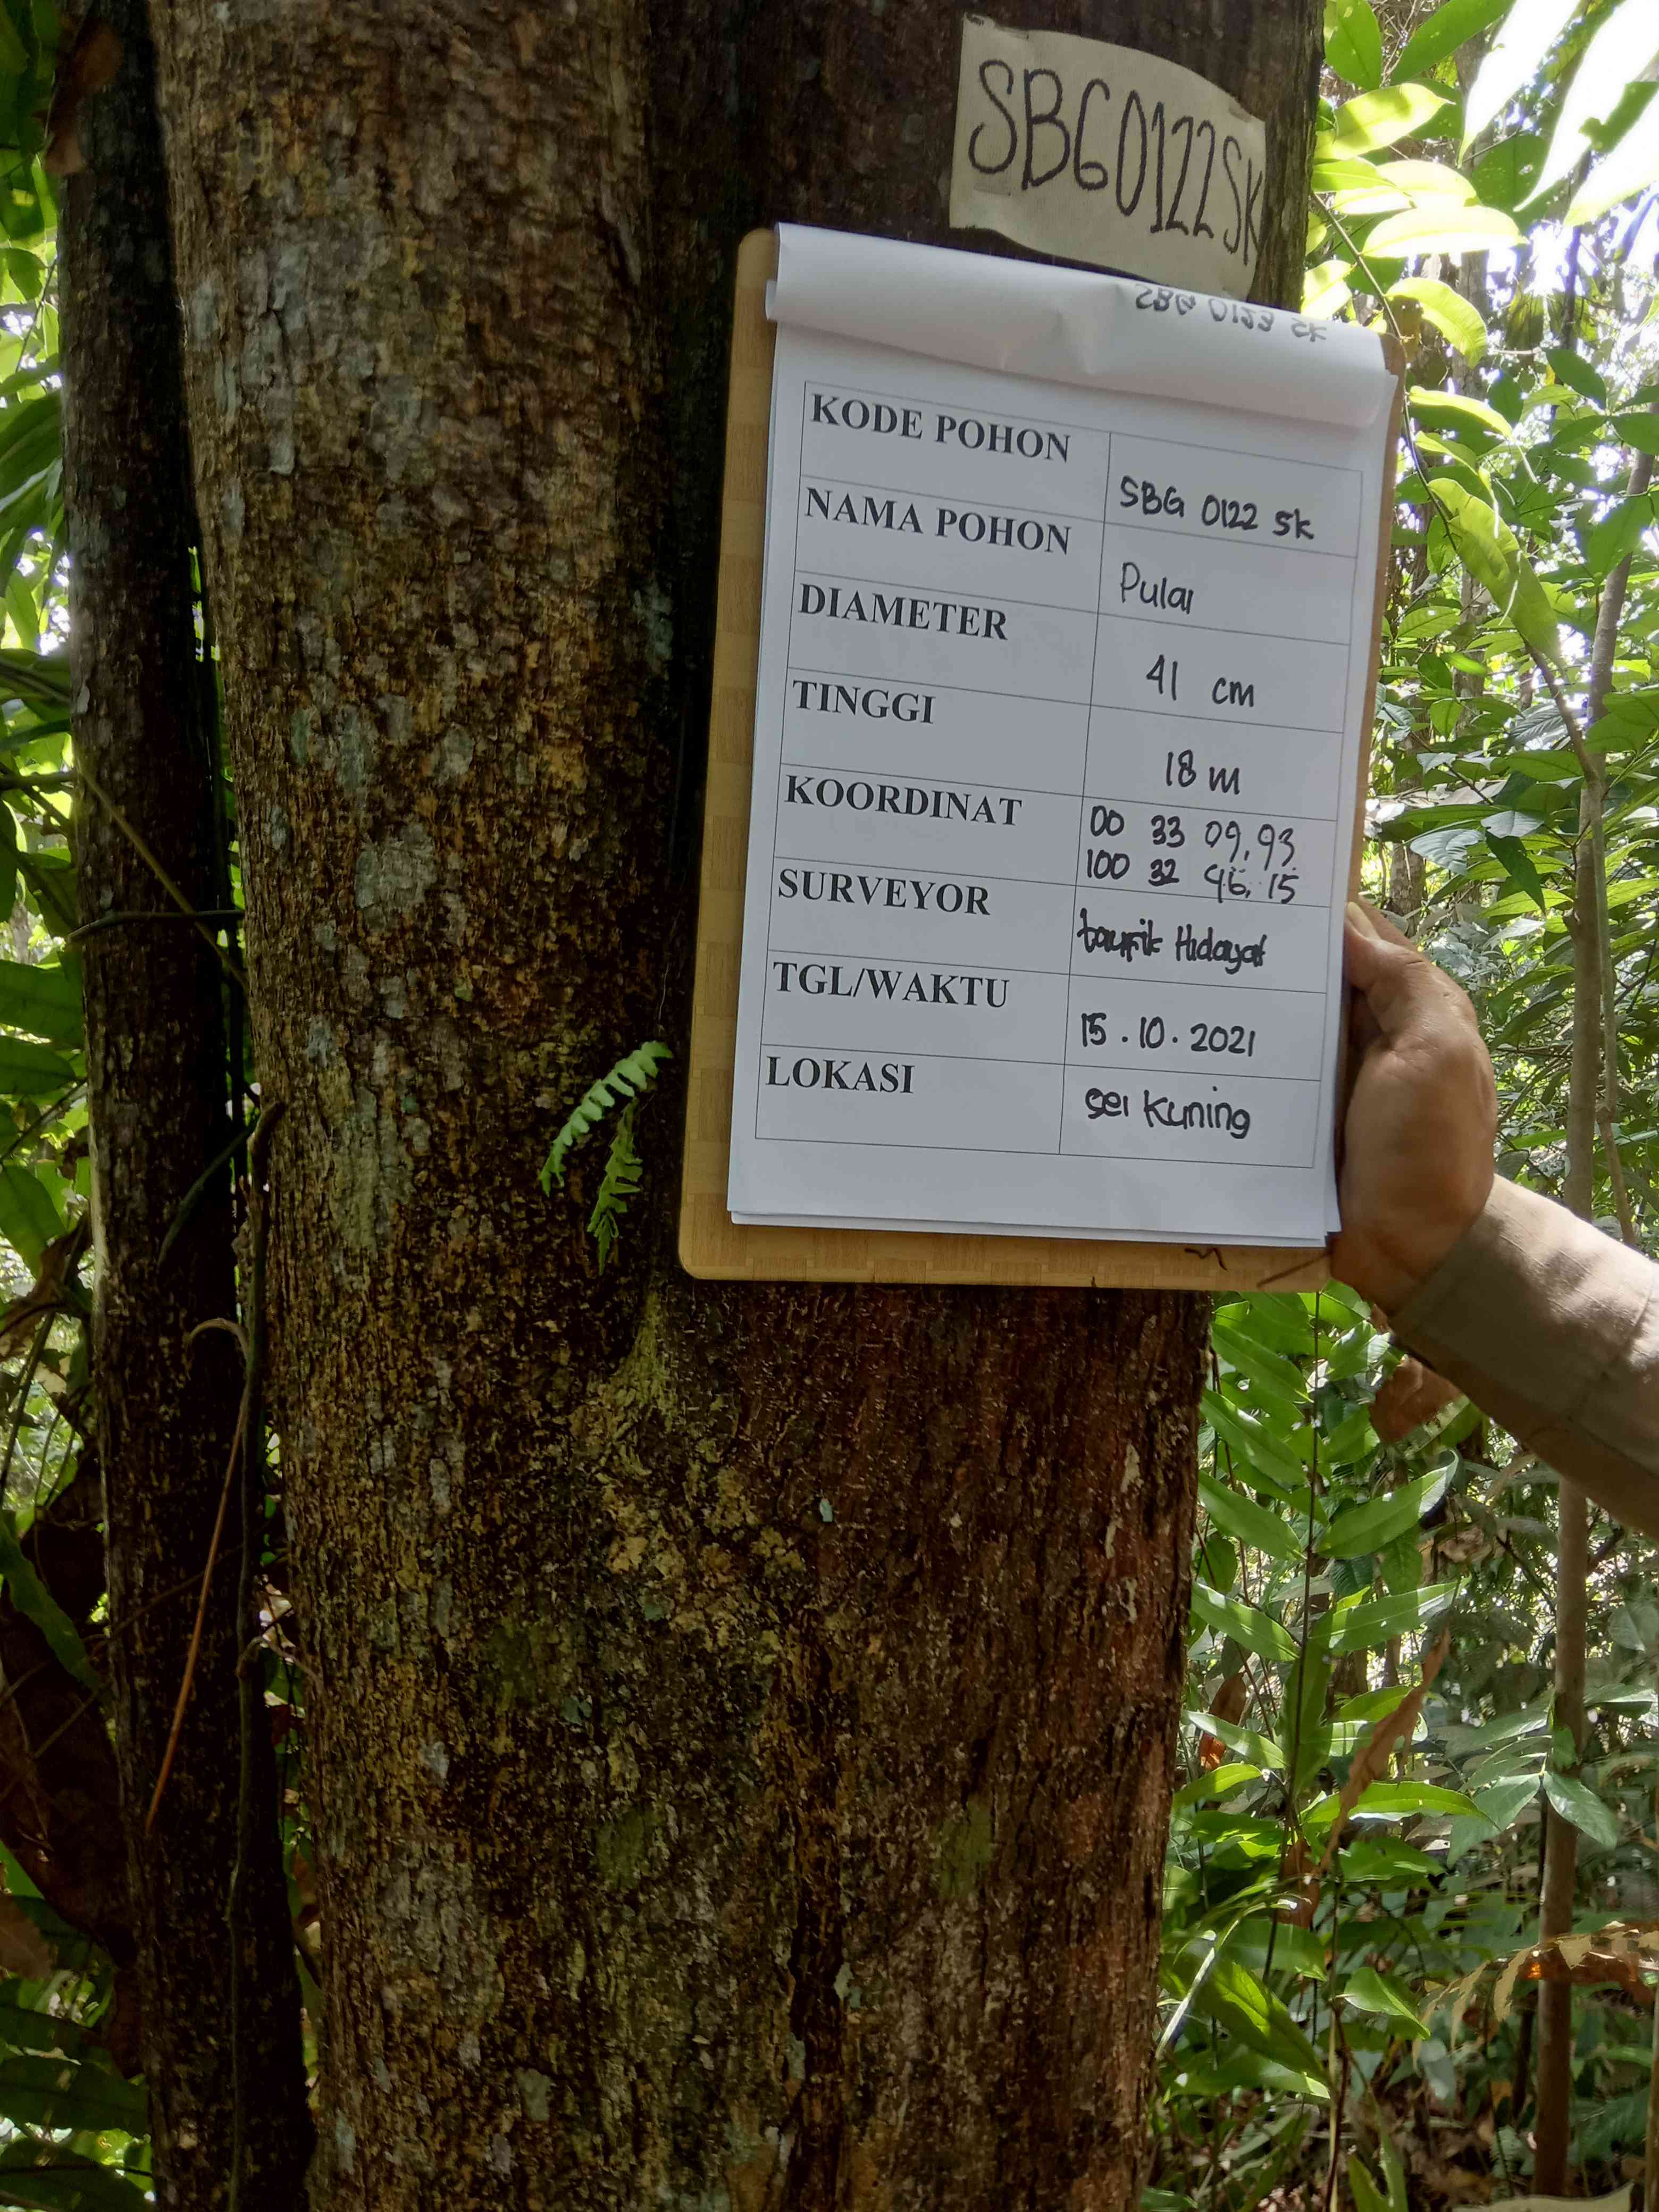 SBG0122SK
SBG 0123 SK
KODE POHON SBG 0122 SK
NAMA POHON Pulai
DIAMETER 41 cm
TINGGI 18 m
KOORDINAT 00 33 09,93
100 32 46,15
SURVEYOR taufik Hidayat
TGL/WAKTU 15.10.2021
LOKASI Sei Kuning